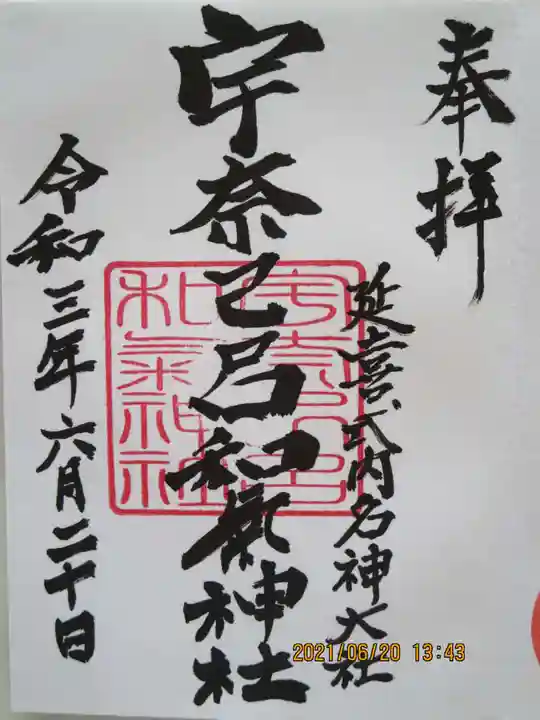 奉拝
延喜式内名神大社
宇奈己呂和氣神社
令和三年六月二十日
2021/06/20 13:43